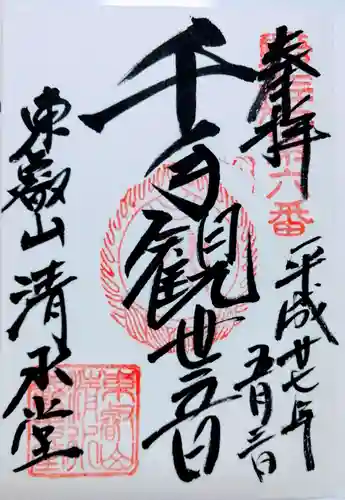 奉拝
六番
平成廿七年
五月三日
千手観世音
東叡山清水堂